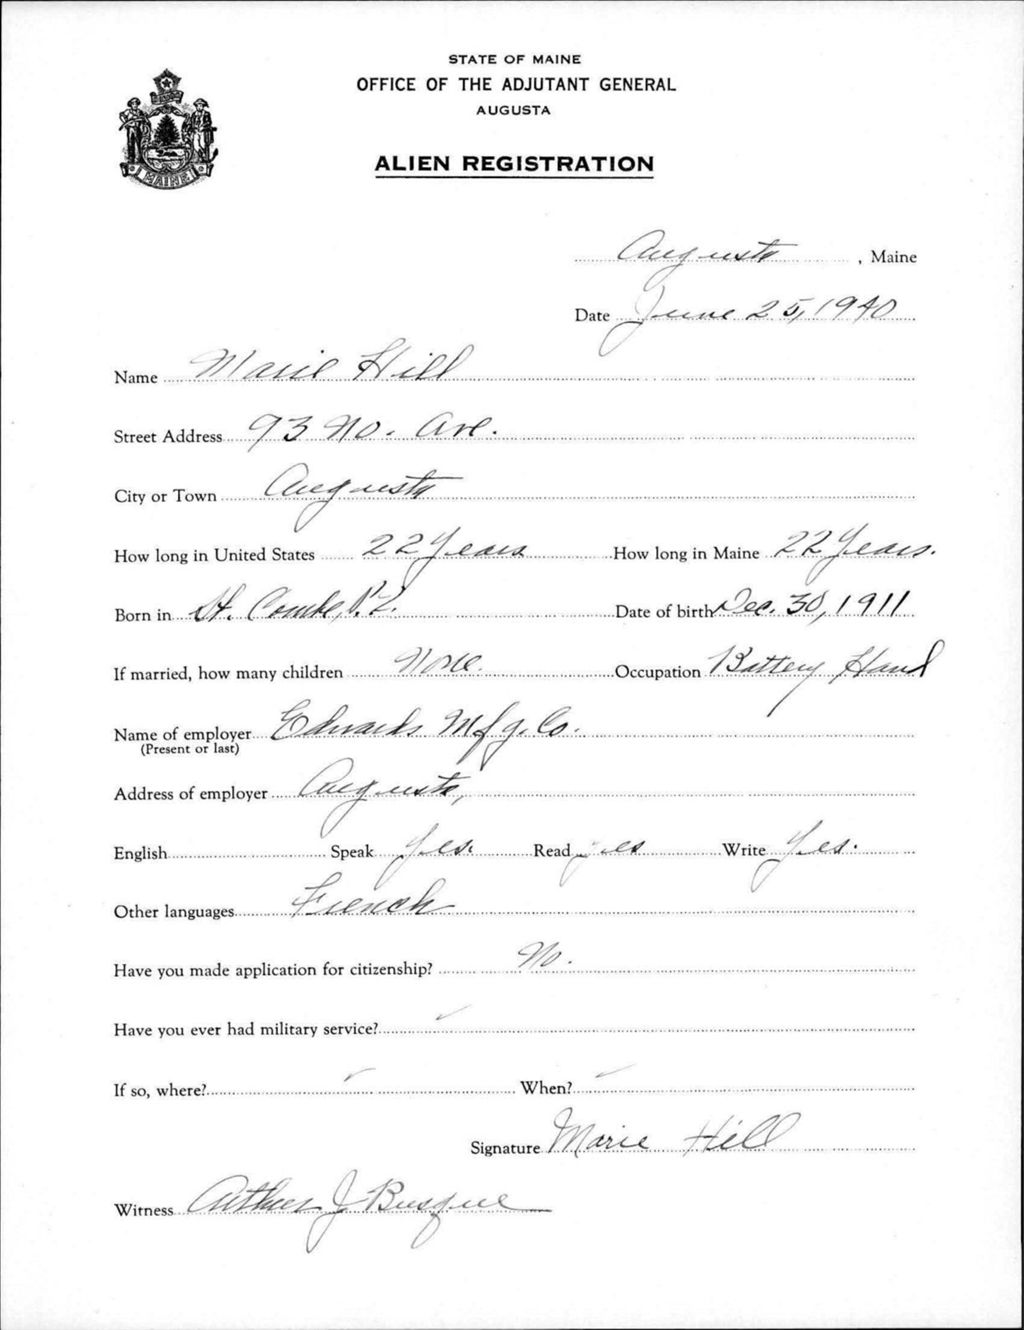 STATE OF MAINE
OFFICE OF THE ADJUTANT GENERAL
AUGUSTA
ALIEN REGISTRATION
MAINE
Augusta, Maine
Date June 25, 1940
Name Marie Hill
Street Address 93 No. Ave.
City or Town Augusta
How long in United States 22 Years How long in Maine 22 Years.
Born in St. Combe, P.Q. Date of birth Dec. 30, 1911
If married, how many children None. Occupation Battery Hand
Name of employer Edwards Mfg. Co.
(Present or last)
Address of employer Augusta,
English Speak Yes. Read Yes Write Yes.
Other languages French
Have you made application for citizenship? No.
Have you ever had military service?
If so, where? When?
Signature Marie Hill
Witness Arthur J Busque